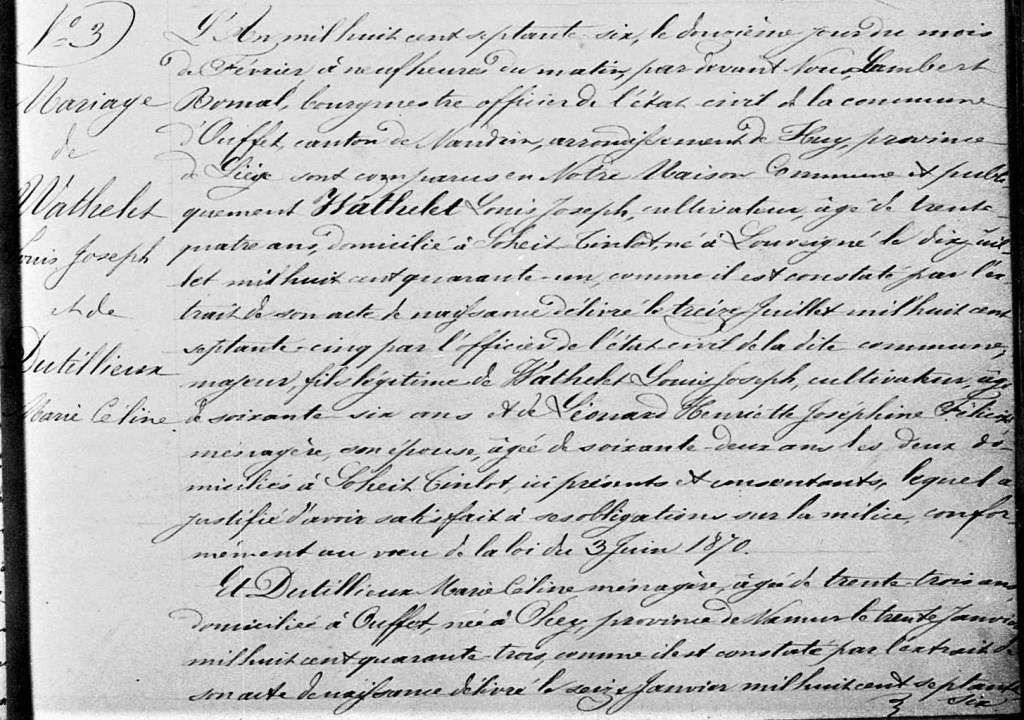 N° 3
Mariage
de
Wathelet
Louis Joseph
et de
Dutillieux
Marie Céline.
L'An mil huit cent septante-six, le douzième jour du mois
de Février à neuf heures du matin, par devant Nous, Lambert
Bomal, bourgmestre officier de l'état civil de la commune
d'Ouffet, canton de Nandrin, arrondissement de Huy, province
de Liège sont comparus en Notre Maison Commune et publi-
quement Wathelet Louis Joseph, cultivateur, âgé de trente-
quatre ans, domicilié à Soheit Tinlot, né à Louveigné le dix juil-
let mil huit cent quarante-un, comme il est constaté par l'ex-
trait de son acte de naissance délivré le treize Juillet mil huit cent
septante-cinq par l'officier de l'état civil de la dite commune,
majeur, fils légitime de Wathelet Louis Joseph, cultivateur, âgé
de soixante-six ans et de Léonard Henriette Joséphine
ménagère, son épouse, âgée de soixante-deux ans les deux do-
miciliés à Soheit Tinlot, ici présents et consentants, lequel a
justifié d'avoir satisfait à ses obligations sur la milice, confor-
mément au vœu de la loi du 3 Juin 1870.
Et Dutillieux Marie Céline ménagère, âgée de trente-trois ans
domiciliée à Ouffet, née à Ohey, province de Namur le trente Janvier
mil huit cent quarante-trois, comme il est constaté par l'extrait de
son acte de naissance délivré le seize Janvier mil huit cent septante
six